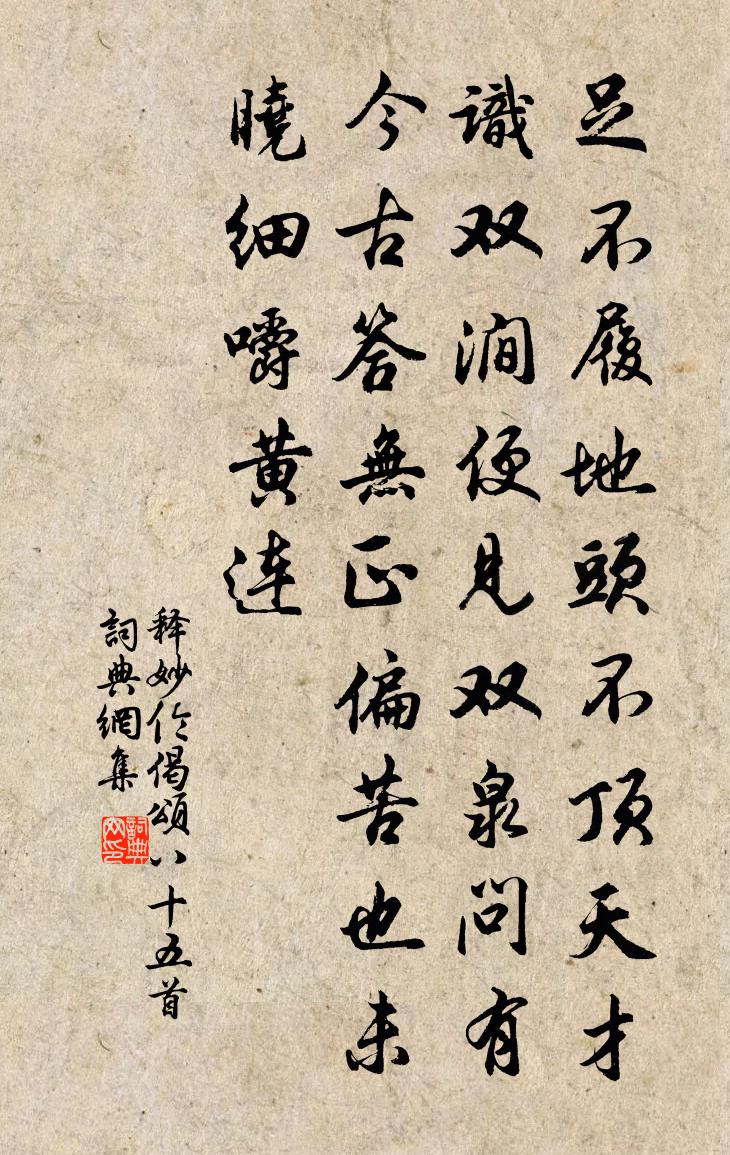 足不履地頭不顶天才
識双澗便見双泉問有
今古答無正偏苦也未
曉细嚼黄连
释妙伦偈頌八十五首
詞典網集
詞典网印